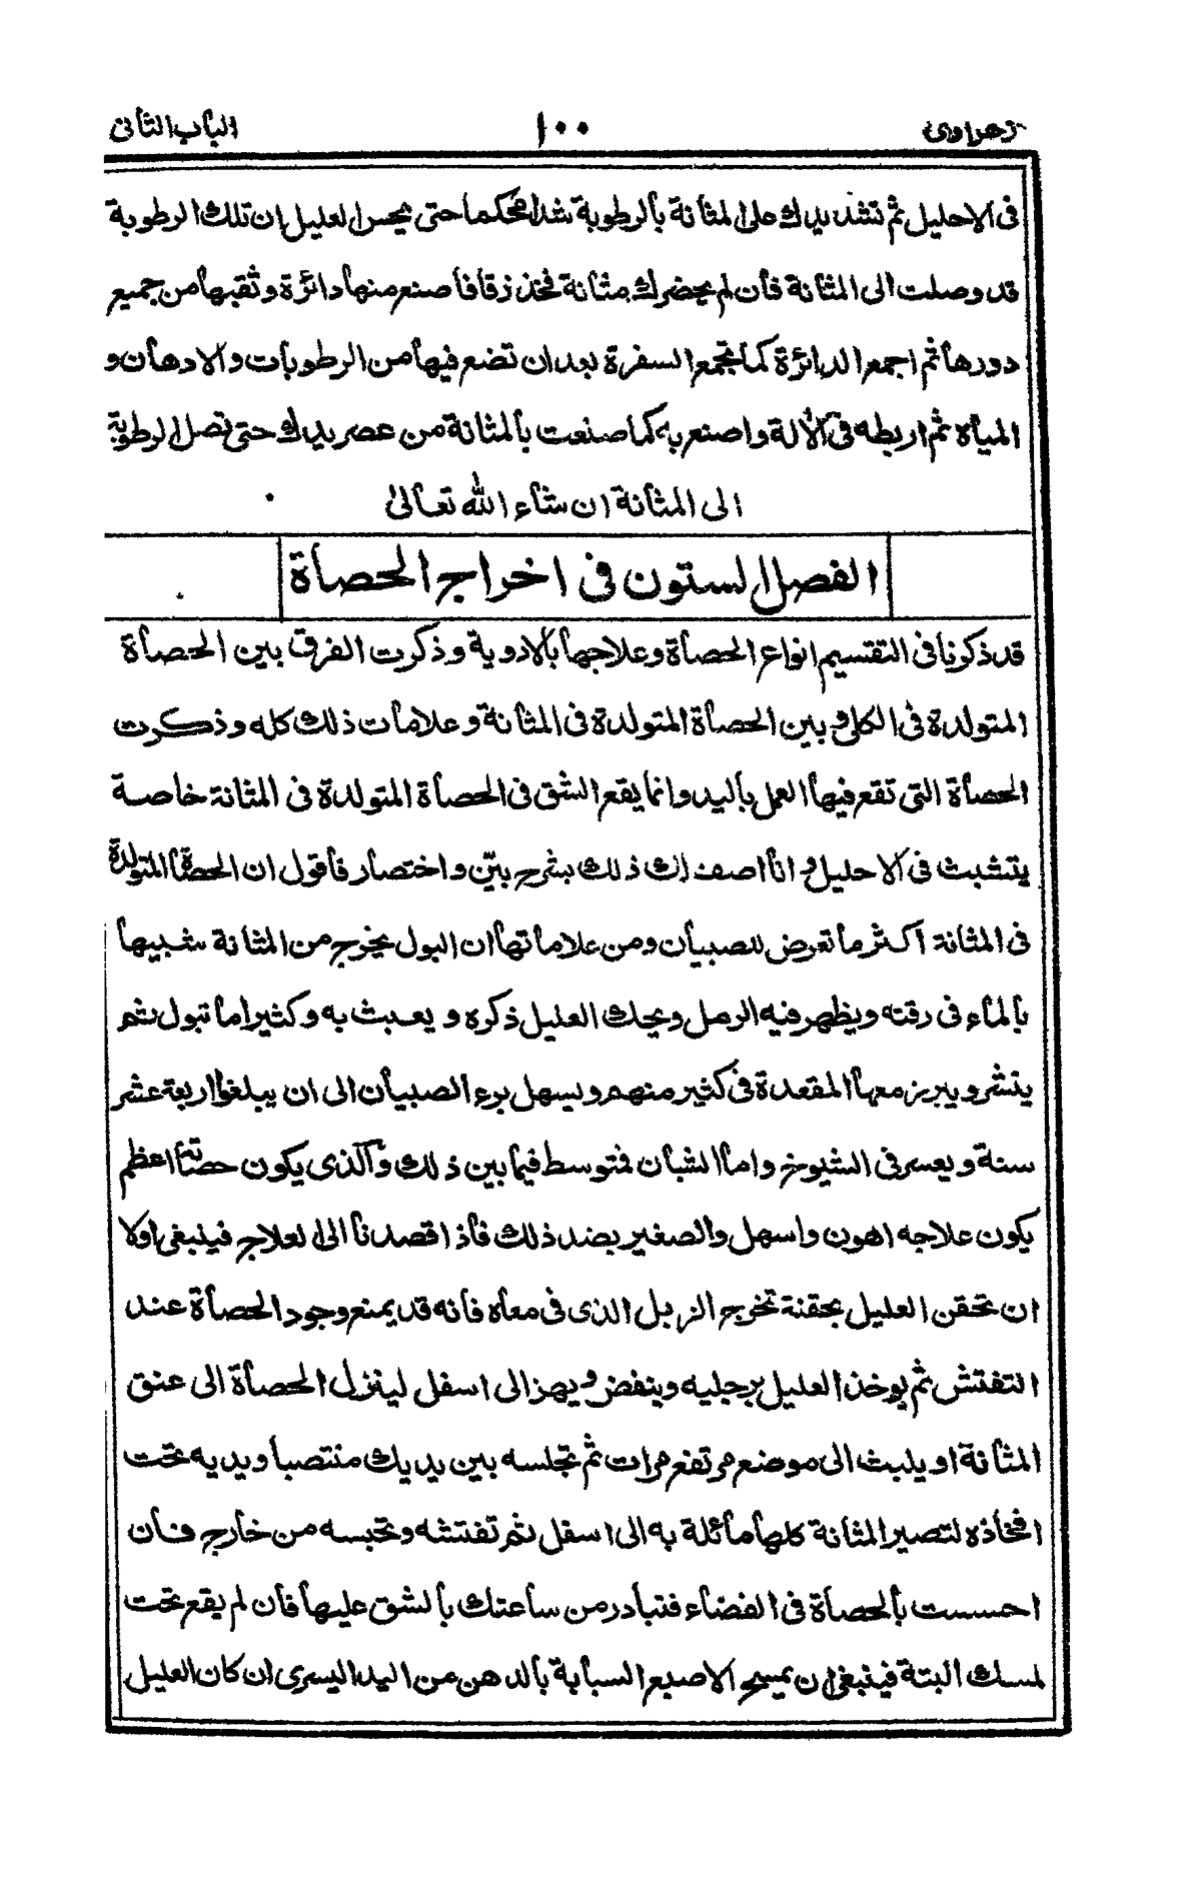 زهراوى ١٠٠ الباب الثانى
فى الاحليل ثم تشد يدك على المثانة بالرطوبة شدا محكما حتى يحس العليل ان تلك الرطوبة
قد وصلت الى المثانة فان لم يحضرك مثانة فخذ زقا فاصنع منها دائرة وثقبها من جميع
دورها ثم اجمع الدائرة كما تجمع السفرة بعد ان تضع فيها من الرطوبات والادهان و
المياه ثم اربطه فى الألة واصنع به كما صنعت بالمثانة من عصر يدك حتى تصل الرطوبة
الى المثانة ان شاء الله تعالى
الفصل الستون فى اخراج الحصاة
قد ذكرنا فى التقسيم انواع الحصاة وعلاجها بالادوية وذكرت الفرق بين الحصاة
المتولدة فى الكلى وبين الحصاة المتولدة فى المثانة وعلامات ذلك كله وذكرت
الحصاة التى تقع فيها العمل باليد وانما يقع الشق فى الحصاة المتولدة فى المثانة خاصة
يتشبث فى الاحليل وانا اصف لك ذلك بشرح بيّن واختصار فاقول ان الحصاة المتولدة
فى المثانة آكثر ما تعرض للصبيان ومن علاماتها ان البول يخرج من المثانة شبيها
بالماء فى رقته ويظهر فيه الرمل ويحك العليل ذكره ويعبث به وكثيرا ما تبول ثم
ينشر ويبرز معها المقعدة فى كثير منهم ويسهل برء الصبيان الى ان يبلغوا اربعة عشر
سنة ويعسر فى الشيوخ واما الشبان فمتوسط فيما بين ذلك والذى يكون حصاته اعظم
يكون علاجه اهون واسهل والصغير بضد ذلك فاذا قصدنا الى العلاج فينبغى اولا
ان تحقن العليل بحقنة تخرج الزبل الذى فى معاه فانه قد يمنع وجود الحصاة عند
التفتش ثم يوخذ العليل برجليه وينفض ويهز الى اسفل لينزل الحصاة الى عنق
المثانة او يلبث الى موضع مرتفع مرات ثم تجلسه بين يديك منتصبا ويديه تحت
افخاذه لتصير المثانة كلها مائلة به الى اسفل ثم تفتشه وتحبسه من خارج فان
احسست بالحصاة فى الفضاء فتبادر من ساعتك بالشق عليها فان لم يقع تحت
لمسك البتة فينبغى ان يمسح الاصبع السبابة بالدهن من اليد اليسرى ان كان العليل